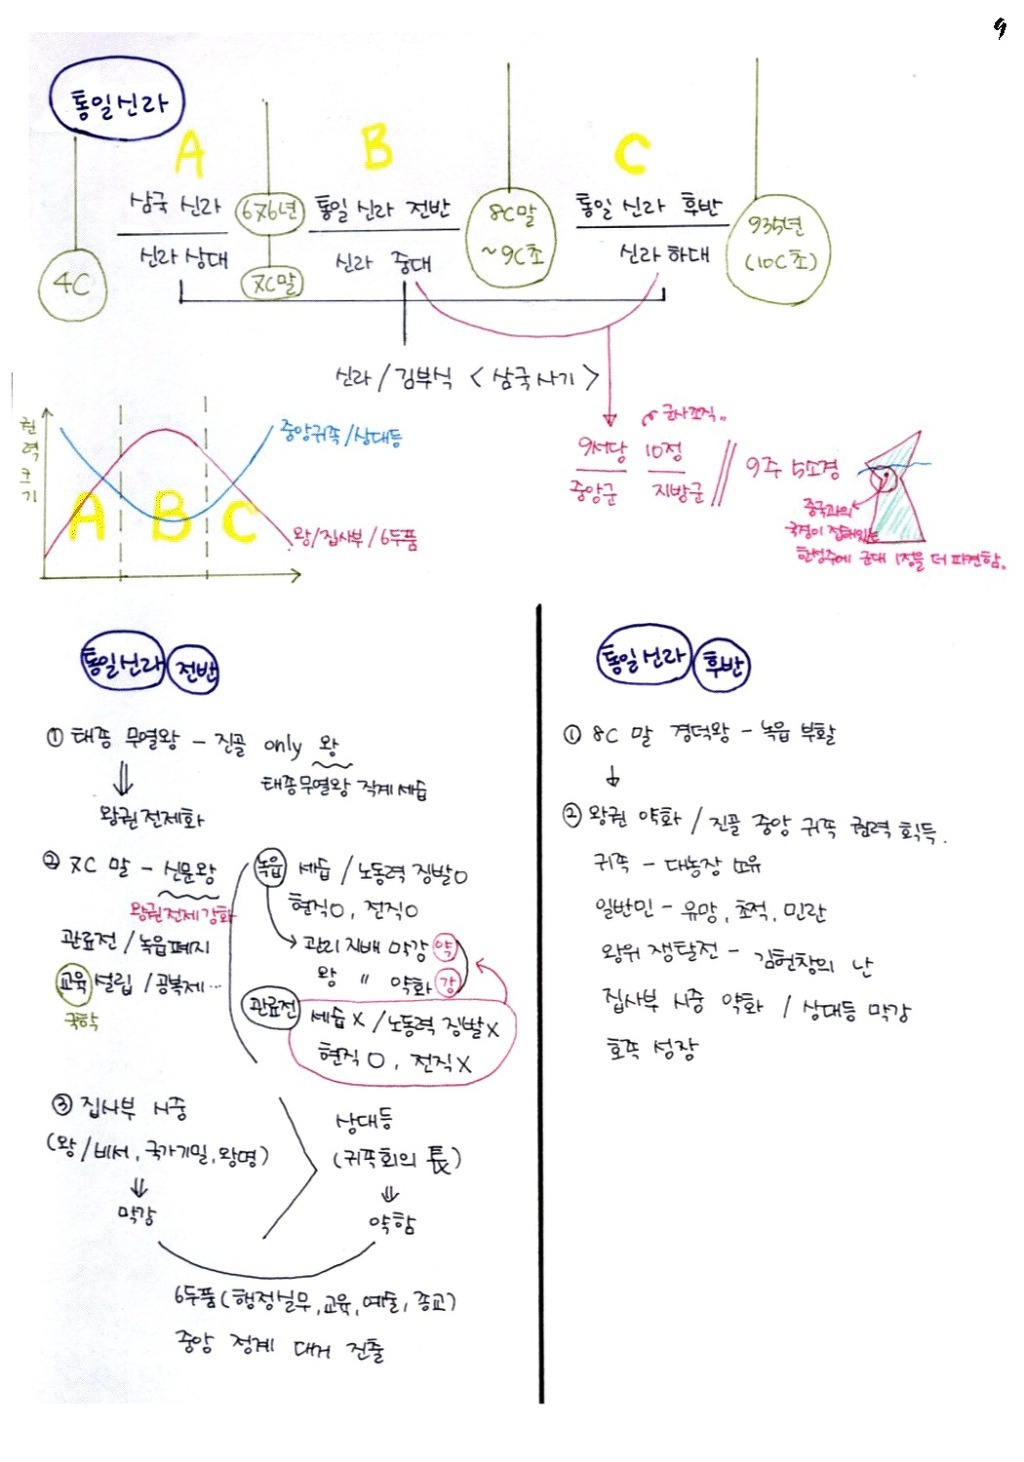 9
통일신라
A
B
C
삼국 신라
676년
통일 신라 전반
8C말
~9C초
통일 신라 후반
935년
(10C초)
4C
신라 상대
7C말
신라 중대
신라 하대
신라/김부식 <삼국사기>
권력크기
중앙귀족/상대등
A
B
C
왕/집사부/6두품
군사조직
9서당
중앙군
10정
지방군
9주 5소경
중국과의
국경이 접해있는
한성주에 군대 1정을 더 파견함.
통일신라 전반
① 태종 무열왕 - 진골 only 왕
태종무열왕 직계세습
왕권전제화
② 7C 말 - 신문왕
왕권전제강화
관료전/녹읍폐지
교육 설립/공복제…
국학
녹읍 세습/노동력 징발O
현직O, 전직O
관리 지배 막강 약
왕 〃 약화 강
관료전 세습X/노동력 징발X
현직O, 전직X
③ 집사부 시중
(왕/비서, 국가기밀, 왕명)
막강
상대등
(귀족회의 長)
약함
6두품(행정실무, 교육, 예술, 종교)
중앙 정계 대거 진출
통일신라 후반
① 8C 말 경덕왕 - 녹읍 부활
② 왕권 약화 / 진골 중앙 귀족 권력 획득.
귀족 - 대농장 소유
일반민 - 유망, 초적, 민란
왕위 쟁탈전 - 김헌창의 난
집사부 시중 약화 / 상대등 막강
호족 성장